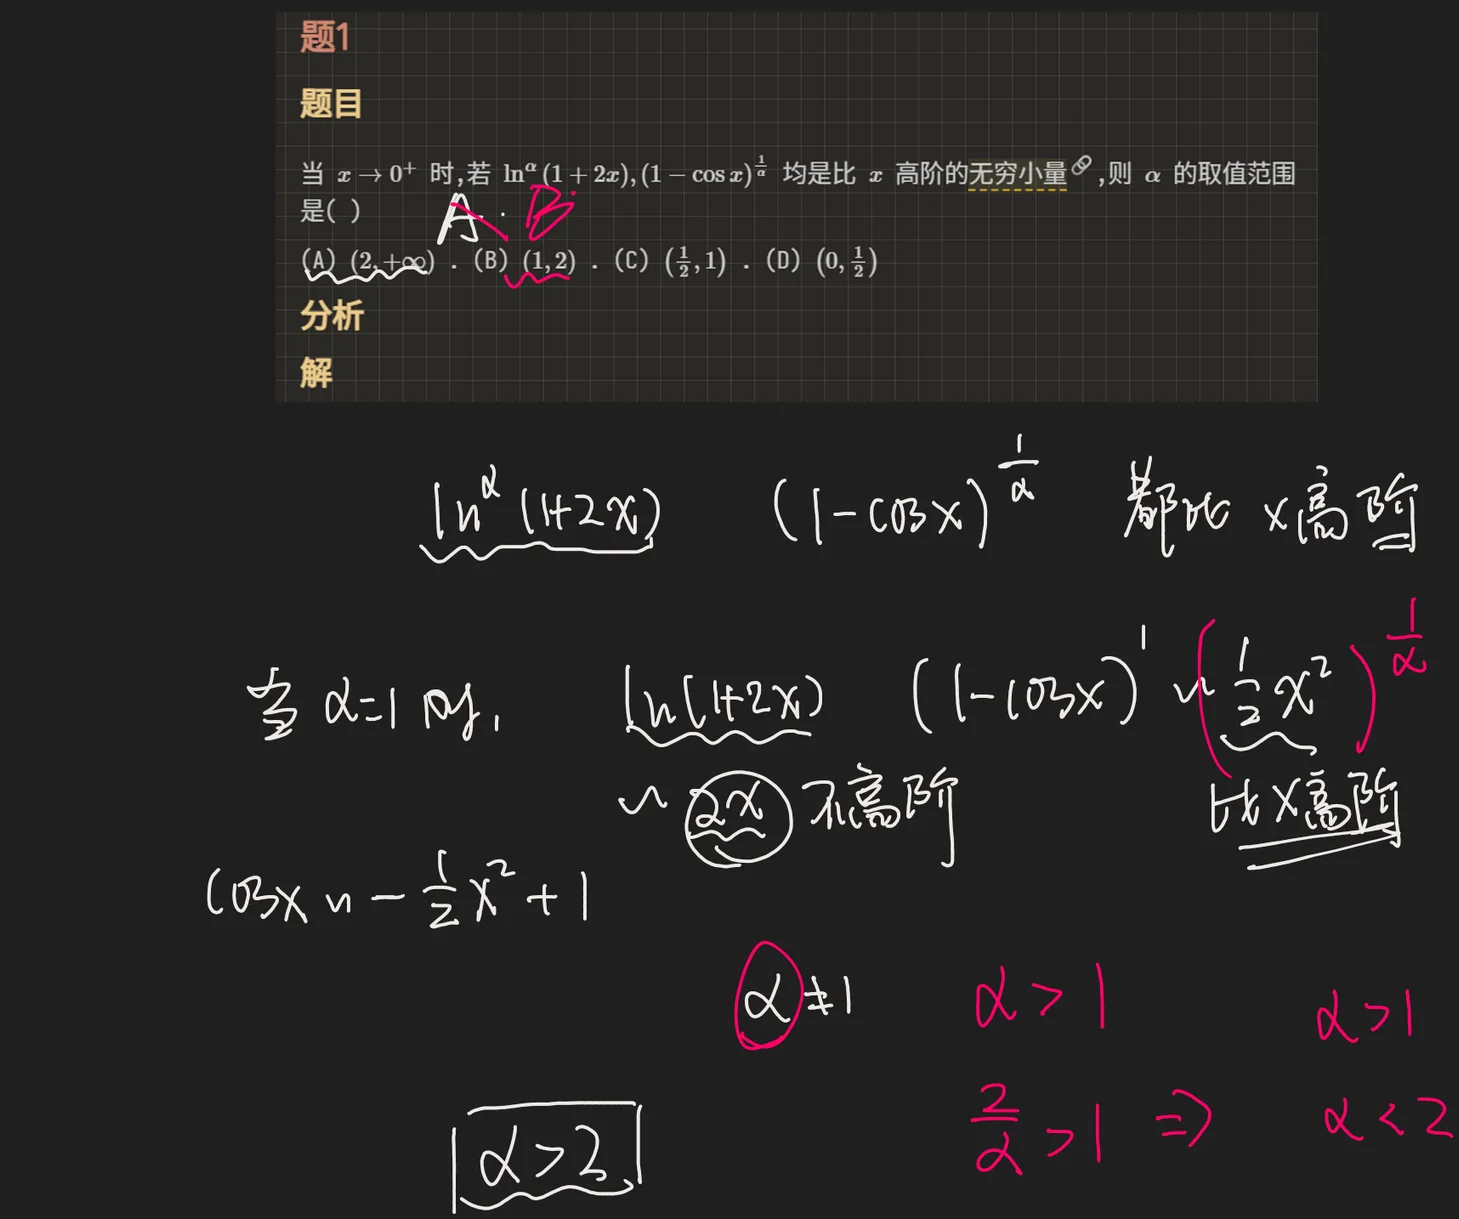 题1
题目
当 x → 0⁺ 时,若 ln^α(1 + 2x), (1 − cos x)^{1/α} 均是比 x 高阶的无穷小量,则 α 的取值范围
是( )
A. B.
(A) (2, +∞) . (B) (1, 2) . (C) (1/2, 1) . (D) (0, 1/2)
分析
解
ln^α(1+2x) (1−cosx)^{1/α} 都比 x高阶
当 α=1 时, ln(1+2x) (1−cosx)^1 ~ (1/2 x²)^{1/α}
~ 2x 不高阶 比x高阶
cosx ~ − 1/2 x² + 1
α ≠ 1 α > 1 α > 1
α > 2 2/α > 1 ⇒ α < 2